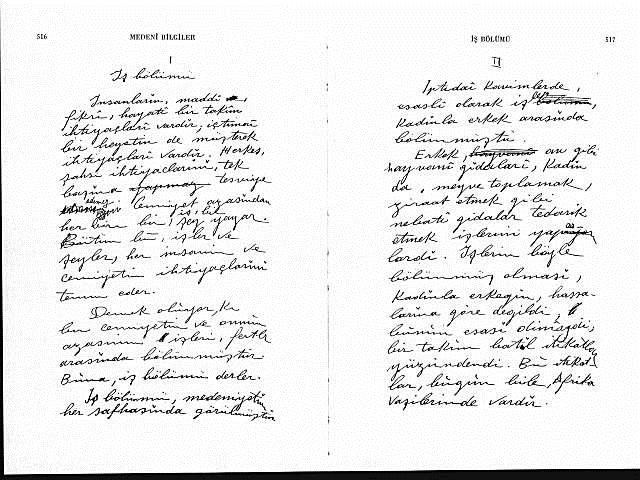 516 MEDENÎ BİLGİLER
I
İş bölümü
İnsanların, maddî,
fikrî, hayatî bir takım
ihtiyaçları vardır, içtimaî
bir hayatın de müşterek
ihtiyaçları vardır. Herkes,
şahsî ihtiyaclarını, tek
başına tesviye
edemez. Cemiyet azasından
her biri bir iş, bir şey yapar.
Bütün bu, işler ve
şeyler, her insanın ve
cemiyetin ihtiyaçlarını
temin eder.
Demek oluyor, ki
bir cemiyetin ve onun
azasının işleri, fertler
arasında bölünmüştür
Buna, iş bölümü derler.
İş bölümü, medeniyetin
her safhasında görülmüştür
İŞ BÖLÜMÜ 517
II
İptidaî kavimlerde,
esaslı olarak iş
kadınla erkek arasında
bölünmüştü.
Erkek, av gibi
hayvanî gıdaları, kadın
da, meyve toplamak,
ziraat etmek gibi
nebatî gıdalar tedarik
etmek işlerini
lardı. İşlerin böyle
bölünmüş olması,
kadınla erkeğin, hassa-
larına göre değildi,
bunun esası olmuşdı,
bir takım batıl itikatlar
yüzündendi. Bu itikat-
lar, bugün bile Afrika
vaşilerinde vardır.